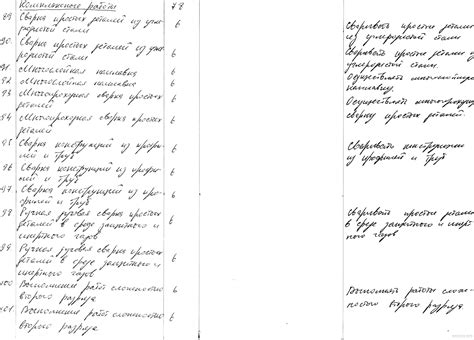 Комплексные работы 78
89 Сварка простых деталей из угле 6 Сваривать простые детали
родистой стали из углеродистой стали
90. Сварка простых деталей из угле 6 Сваривать простые детали из
родистой стали углеродистой стали.
91. Многослойная наплавка 6 Осуществлять многослойную
92. Многослойная наплавка 6 наплавку.
93 Многопроходная сварка простых 6 Осуществлять многопроходную
деталей сварку простых деталей.
94 Многопроходная сварка простых 6
деталей
95 Сварка конструкций из профи 6 Сваривать конструкции
лей и труб из профилей и труб
96 Сварка конструкций из профи 6
лей и труб
97. Сварка конструкций из про 6
филей и труб
98 Ручная дуговая сварка простых 6 Сваривать простые детали
деталей в среде защитного и в среде защитного и инерт
инертного газов ного газов
99. Ручная дуговая сварка простых 6
деталей в среде защитного и
инертного газов
100 Выполнение работ сложностью 6 Выполнять работы слож
второго разряда ностью второго разряда.
101. Выполнение работ сложностью 6
второго разряда